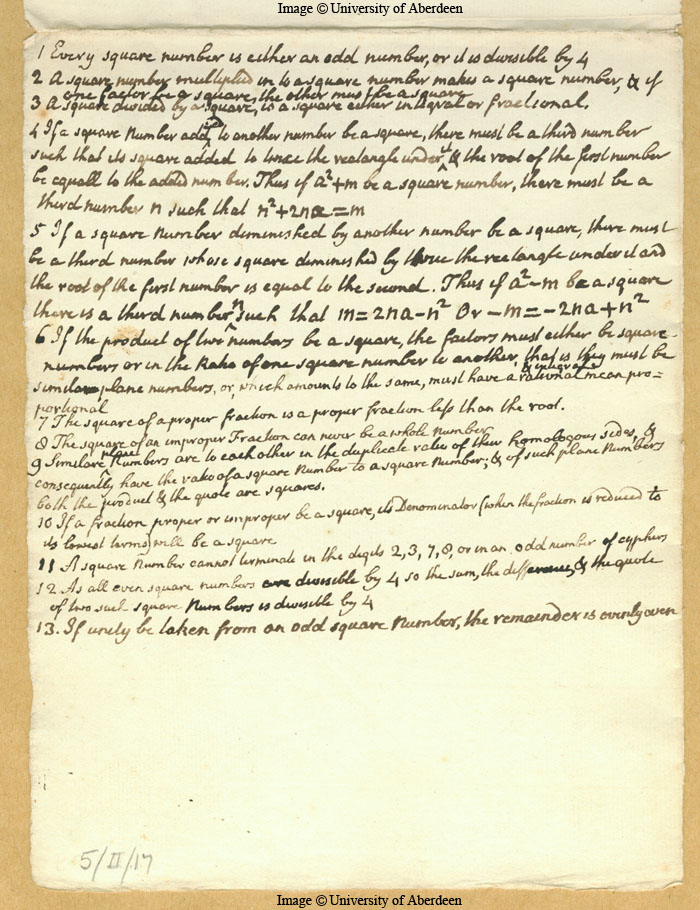 Image © University of Aberdeen
1 Every square number is either an odd number, or it is divisible by 4
2 A square number multiplied in to a square number makes a square number, & if
one factor be a square, the other must be a square
3 A square divided by a square, is a square either integral or fractional.
4 If a square Number added to another number be a square, there must be a third number
such that its square added to twice the rectangle under it & the root of the first number
be equall to the added number. Thus if a²+m be a square number, there must be a
third number n such that n²+2na=m
5 If a square Number diminished by another number be a square, there must
be a third number whose square diminished by twice the rectangle under it and
the root of the first number is equal to the second. Thus if a²-m be a square
there is a third number n such that m=2na-n² Or -m=-2na+n²
6 If the product of two numbers be a square, the factors must either be square
numbers or in the Ratio of one square number to another, that is they must be
similar plane numbers, or, which amounts to the same, must have a rational & integral mean pro=
portional
7 The square of a proper fraction is a proper fraction less than the root.
8 The square of an improper Fraction can never be a whole Number
9 Similar plane Numbers are to each other in the duplicate ratio of their homologous sides, &
consequently have the ratio of a square Number to a square Number; & of such plane Numbers
both the product & the quote are squares.
10 If a fraction proper or improper be a square, its Denominator (when the fraction is reduced to
its lowest terms) will be a square
11 A square Number cannot terminate in the digits 2, 3, 7, 8, or in an odd number of cyphers
12 As all even square numbers are divisible by 4 so the sum, the difference, & the quote
of two such square Numbers is divisible by 4
13. If unity be taken from an odd square Number, the remainder is evenly even
5/II/17
Image © University of Aberdeen